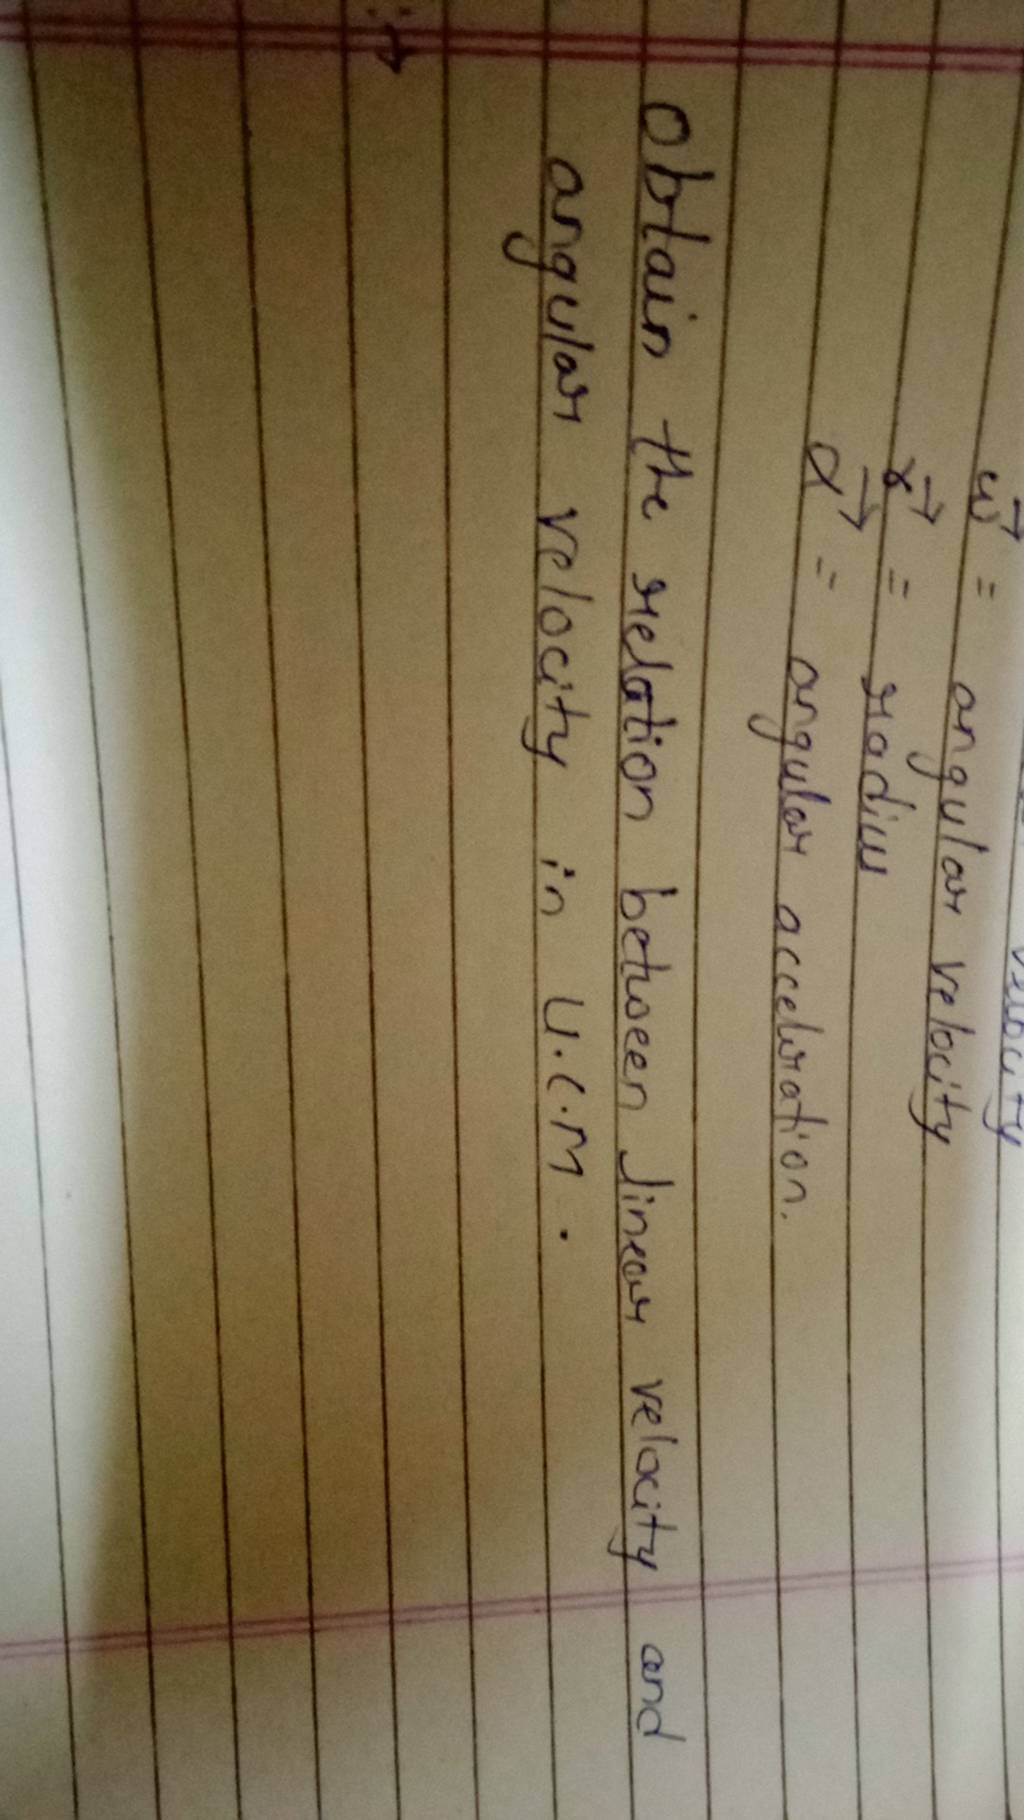 velocity
ω⃗ = angular velocity
r⃗ = radius
α⃗ = angular acceleration.
obtain the relation between linear velocity and
angular velocity in U.C.M.
:→